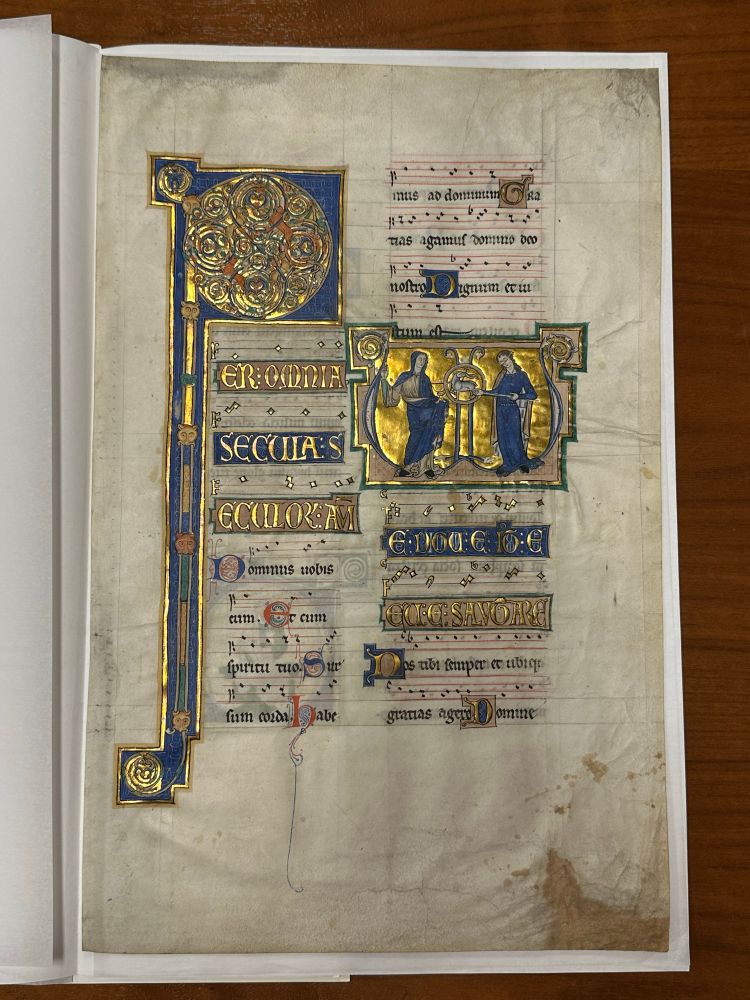 PER:OMNIA
SECULA:S
ECULOR:AM
Dominus uobis
cum. Et cum
spiritu tuo. Sur
sum corda. habe
mus ad dominum Gra
tias agamus domino deo
nostro Dignum et iu
stum est
Nos tibi semper et ubiq
gratias agere Domine